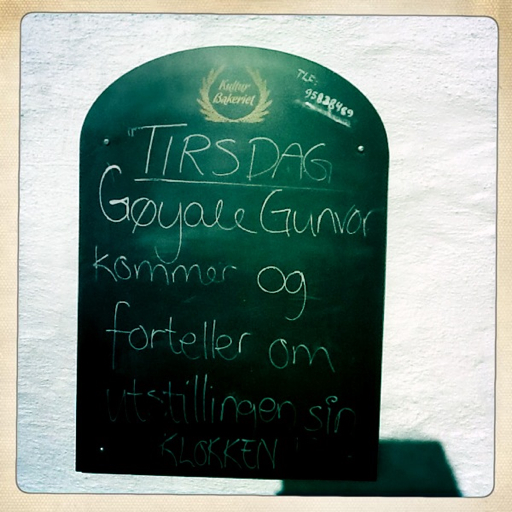 Kultur
Bakeriet
TLF:
95828469
TIRSDAG
Gøyale Gunvor
kommer og
forteller om
utstillingen sin
KLOKKEN